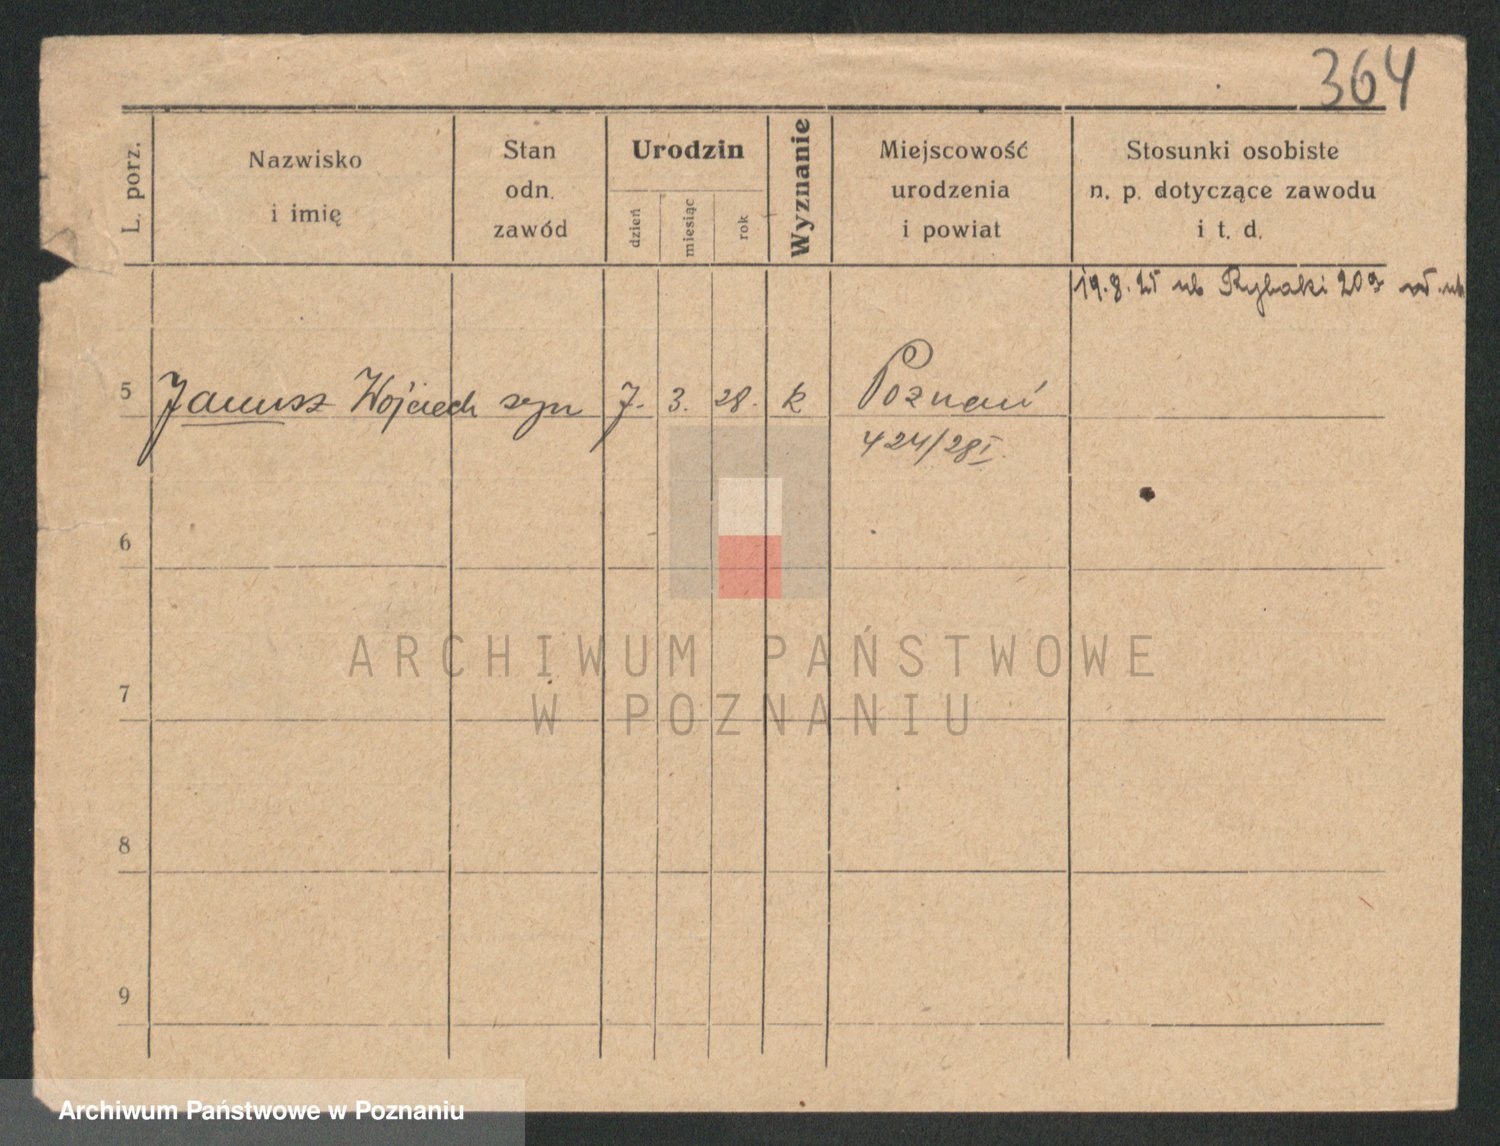 364
L. porz.
Nazwisko
i imię
Stan
odn.
zawód
Urodzin
dzień
miesiąc
rok
Wyznanie
Miejscowość
urodzenia
i powiat
Stosunki osobiste
n. p. dotyczące zawodu
i t. d.
19.8. Rybaki 20a
5 Janusz Wójciech syn 7. 3. 28. k Poznań
424/28 I
6
7
8
9
ARCHIWUM PAŃSTWOWE
W POZNANIU
Archiwum Państwowe w Poznaniu